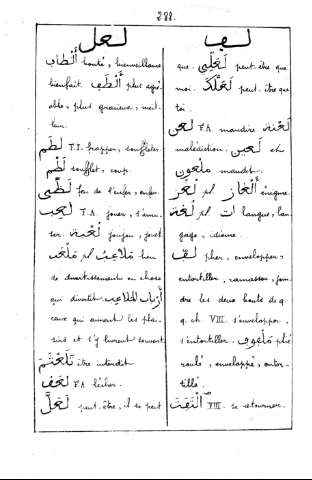 288.
لعل
ألطاب bonté, bienveillance
bienfait. ألطف plus agré-
able, plus gracieux, meil-
leur.
لطم F.I. frapper, souffleter.
لطم soufflet, coup.
لظى feu de l'enfer, enfer.
لعب F.A. jouer, s'amu-
ser. لعبة joujou, jouet
ملعب pl ملاعب lieu
de divertissement ou chose
qui divertit. أرباب الملاعب
ceux qui aiment les plai-
sirs et s'y livrent souvent
être interdit
F.A lécher.
لعل peut-être, il se peut
لف
que. لعلي peut-être que
moi. لعلك peut-être que
toi.
لعن F.A. maudire لعنة
malédiction. لعين et
ملعون maudit.
لغز pl ألغاز énigme.
لغة pl ات langue, lan-
gage, idiome.
لف plier, envelopper,
entortiller, ramasser, join-
dre les deux bouts de q.
q. ch VIII. s'envelopper,
s'entortiller. ملفوف plié
roulé, enveloppé, entor-
tillé.
التفت VIII. se retourner.